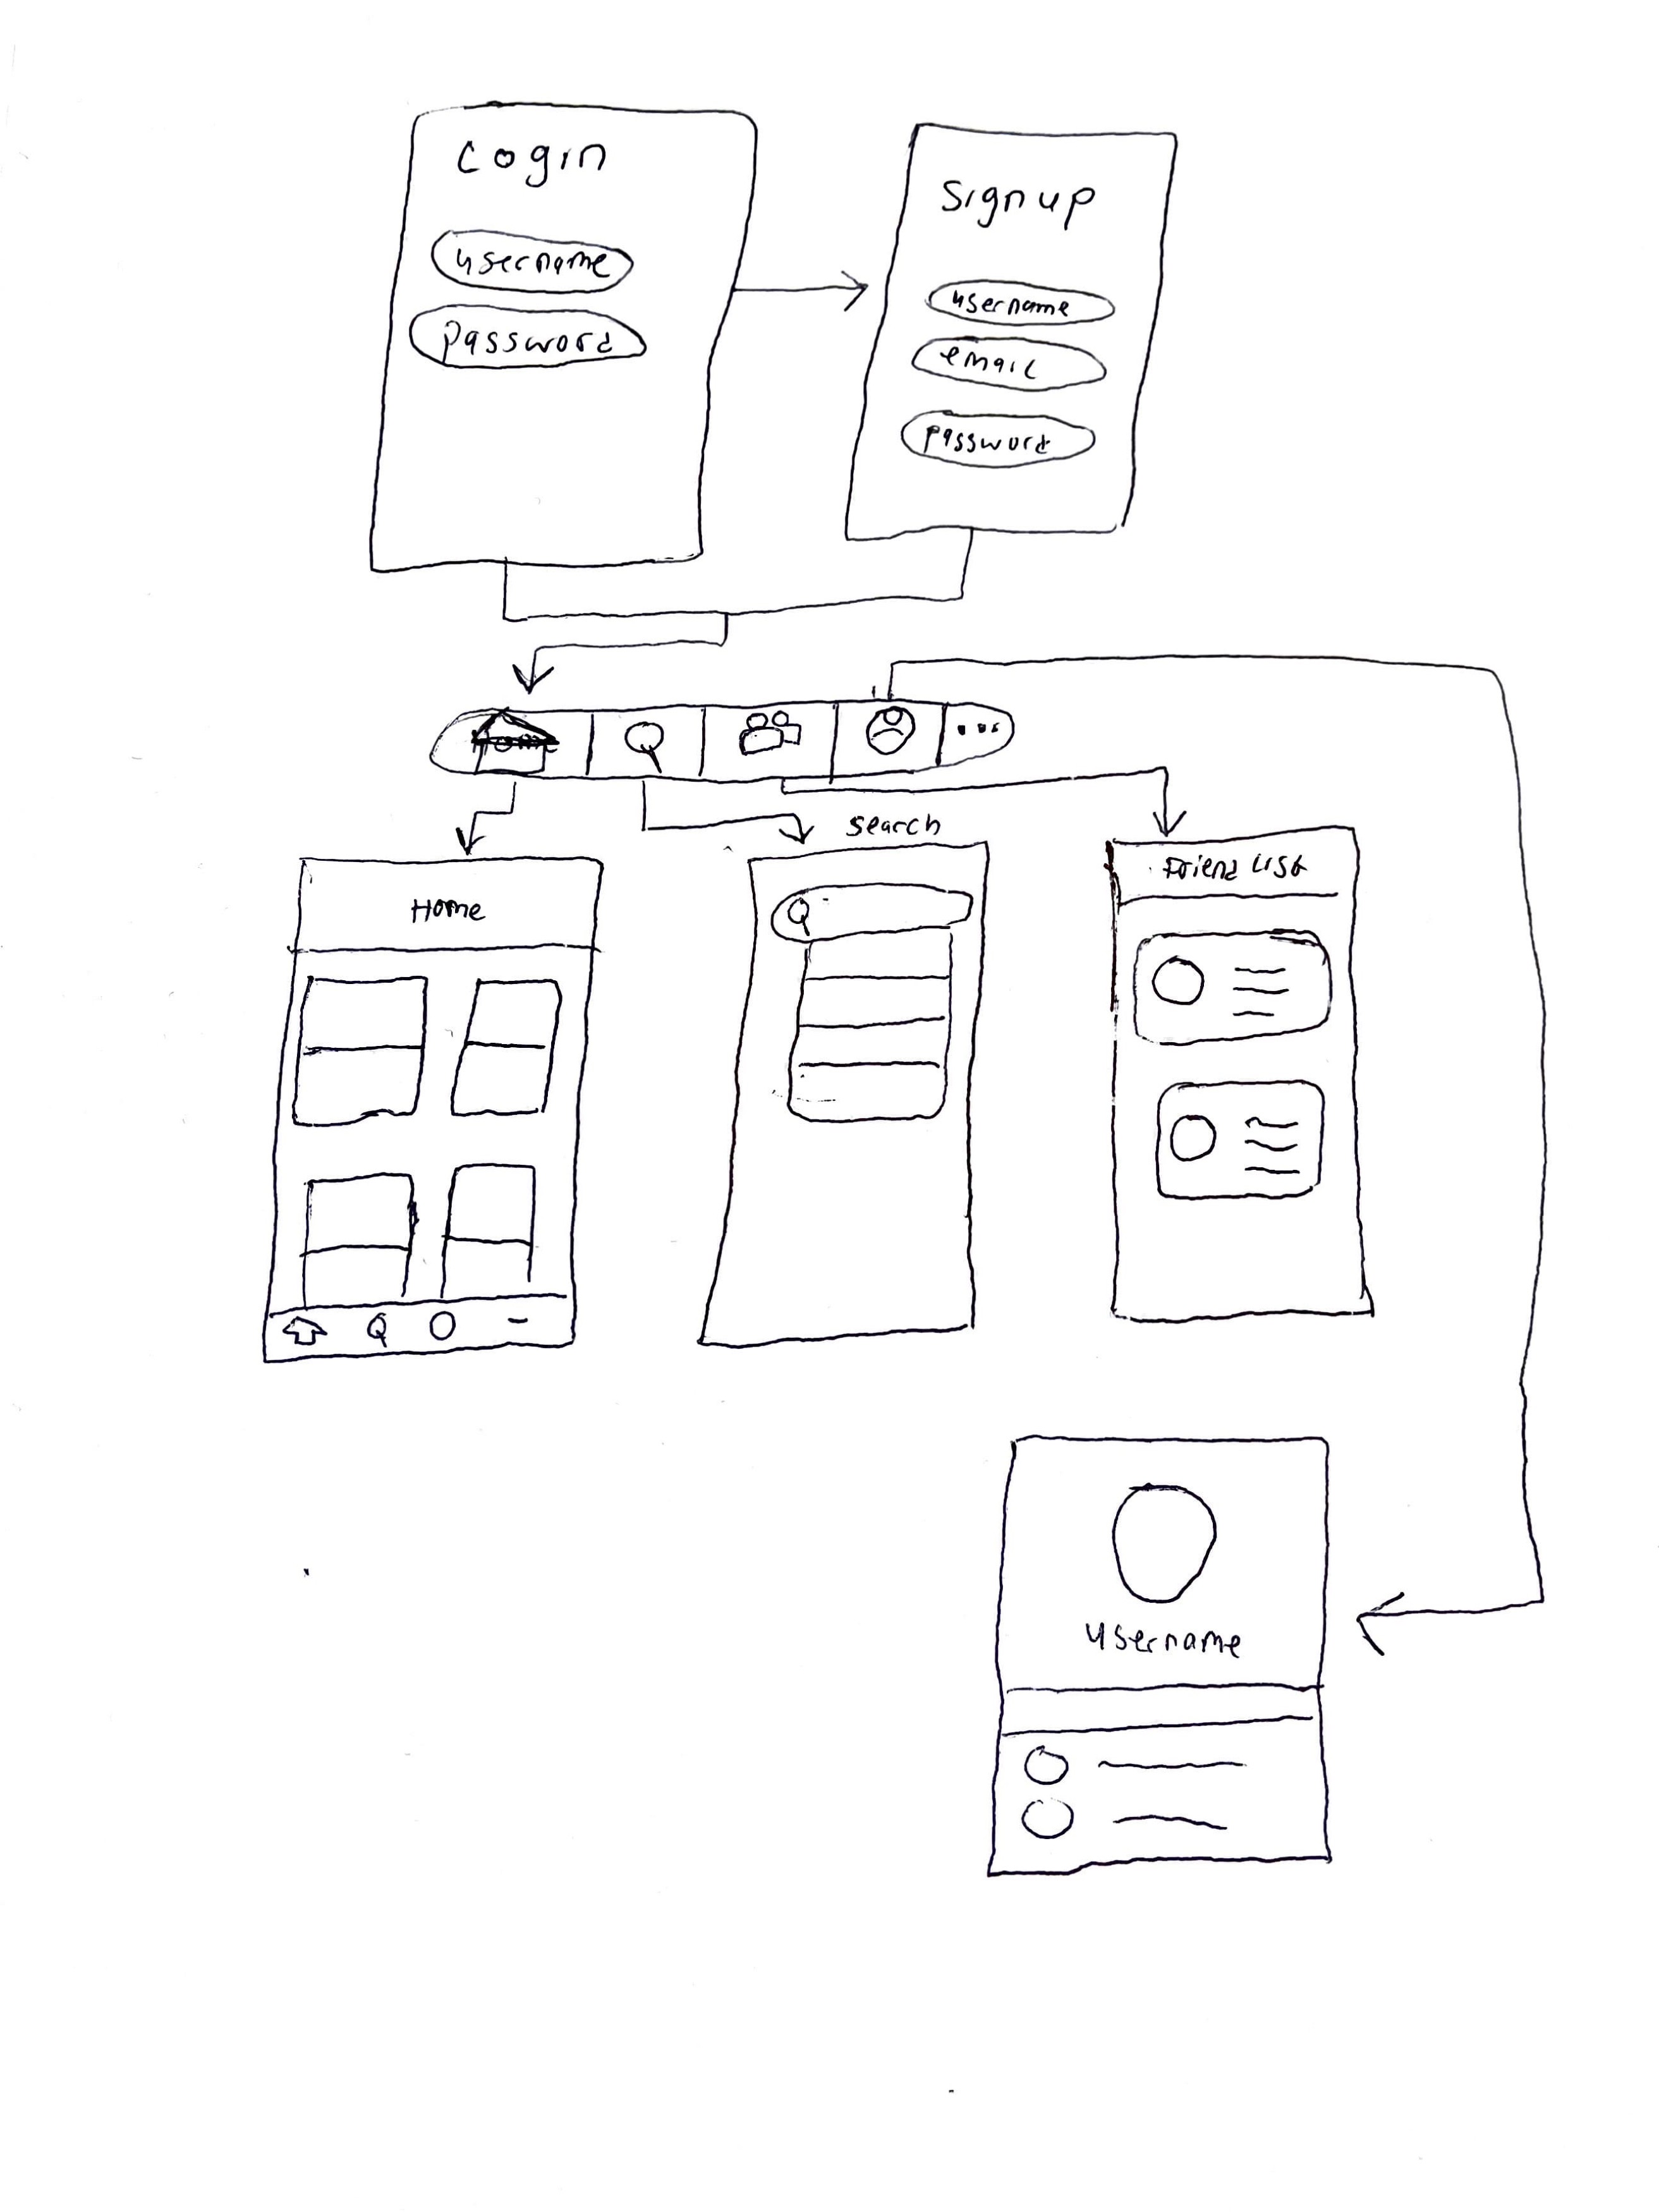 Login
username
password
Signup
username
email
password
Home
...
Search
Home
Friend List
username